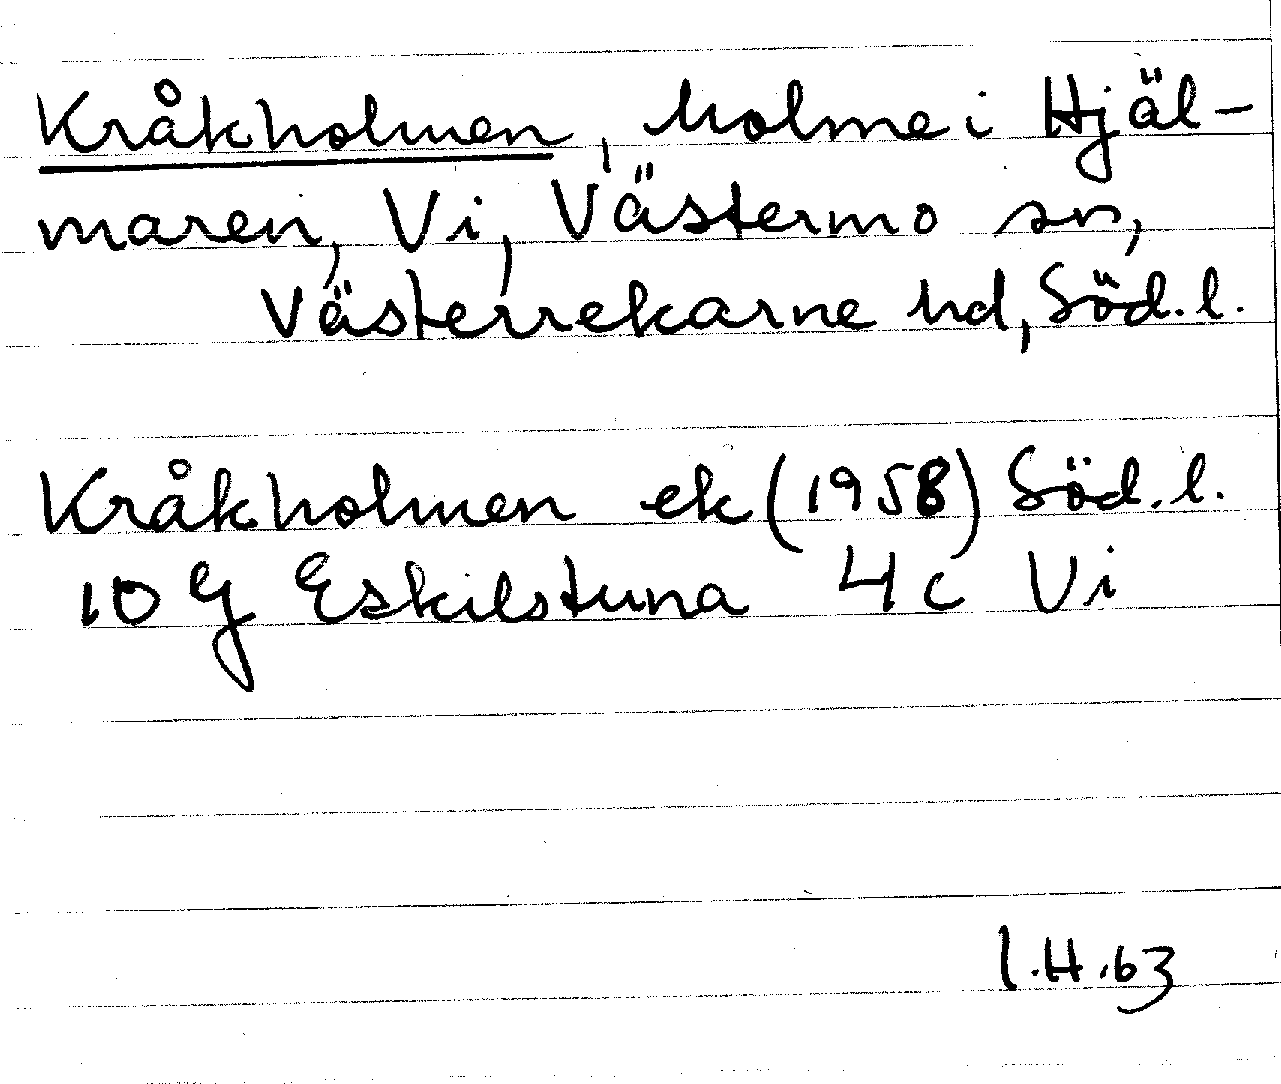 Kråkholmen, holme i Hjäl-
maren, Vi, Västermo sn,
Västerrekarne hd, Söd. l.
Kråkholmen ek (1958) Söd. l.
10 g Eskilstuna 4 c Vi
I.H.63